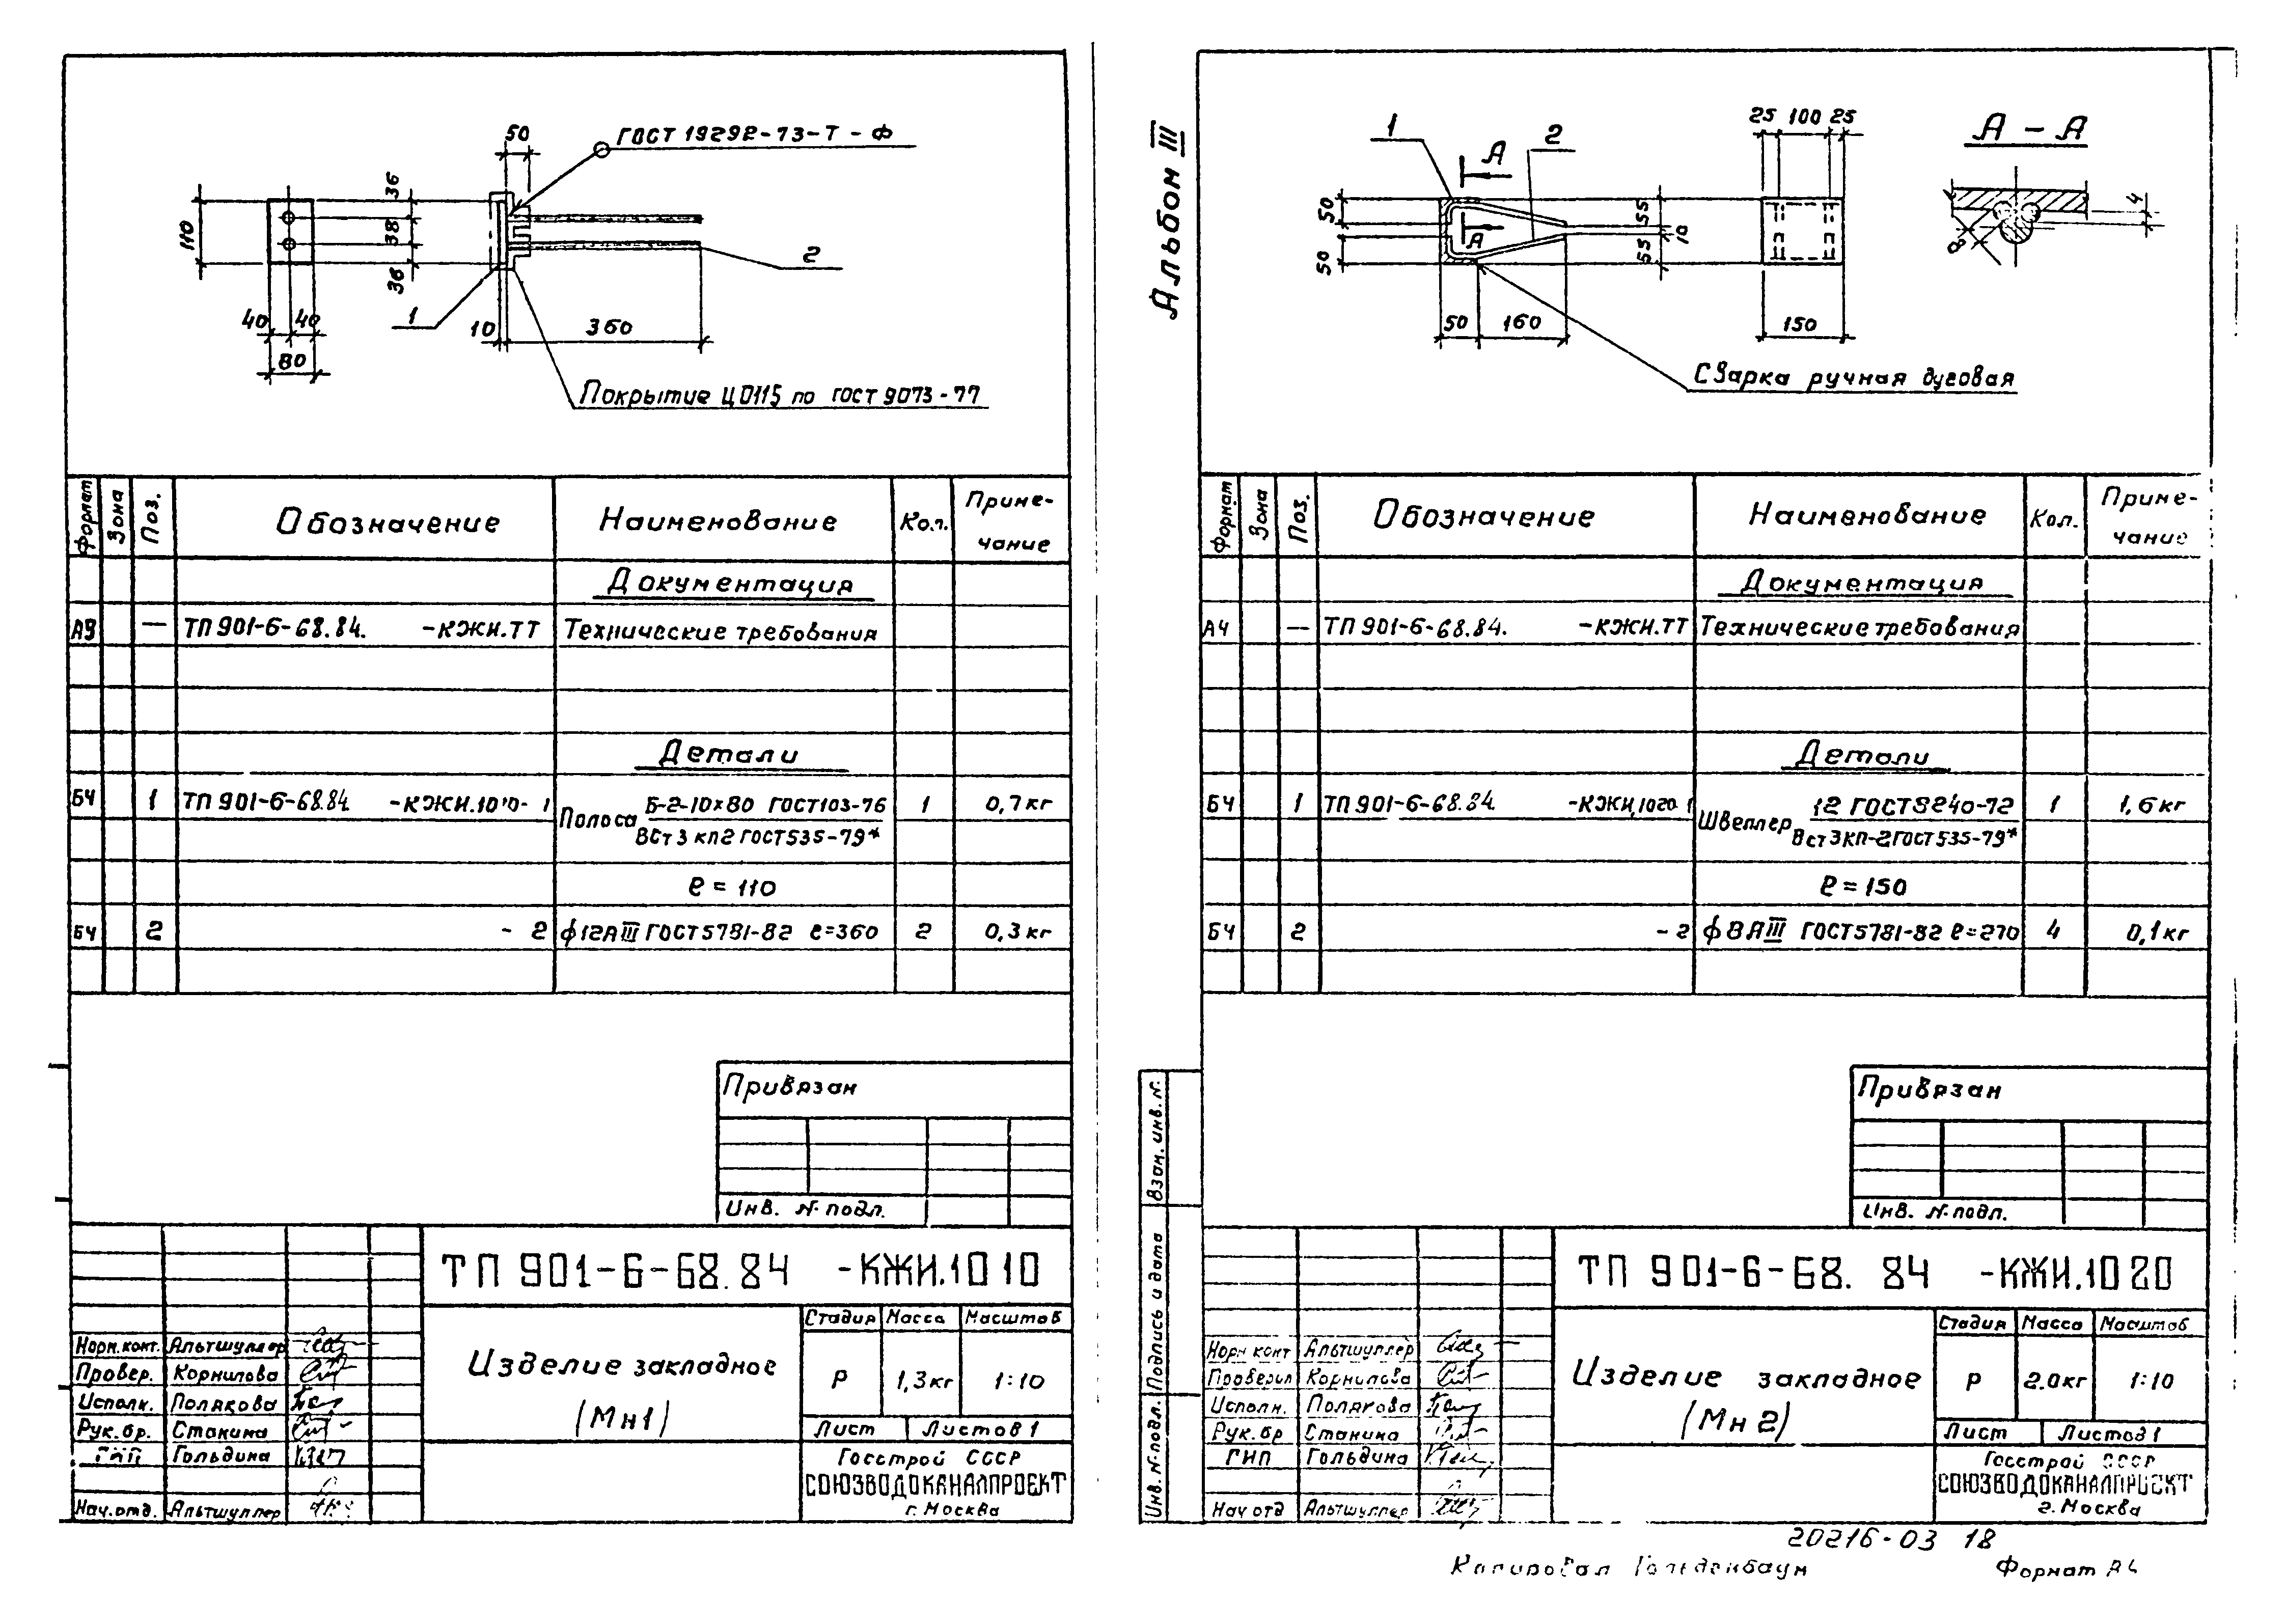 ГОСТ 19292-73-Т-Ф
50
110
36
38
36
2
40 40
80
1
10
360
Покрытие Ц0115 по ГОСТ 9073-77
Формат Зона Поз. Обозначение Наименование Кол. Приме-
чание
Документация
— ТП 901-6-68.84. -КЖИ.ТТ Технические требования
Детали
БЧ 1 ТП 901-6-68.84 -КЖИ.1010-1 Полоса Б-2-10×80 ГОСТ103-76 1 0,7кг
ВСт3кп2 ГОСТ535-79*
ℓ = 110
БЧ 2 - 2 ф12АIII ГОСТ5781-82 ℓ=360 2 0,3кг
Привязан
Инв. № подл.
ТП 901-6-68.84 -КЖИ.1010
Изделие закладное
(Мн1)
Стадия Масса Масштаб
Р 1,3кг 1:10
Лист Листов 1
Госстрой СССР
СОЮЗВОДОКАНАЛПРОЕКТ
г. Москва
Норм.конт. Альтшуллер
Провер. Корнилова
Исполн. Полякова
Рук.бр. Станина
ГИП Гольдина
Нач.отд. Альтшуллер
Альбом III
1
А
2
А
50
50
55
10
55
50 160
25 100 25
150
А - А
4
8
Сварка ручная дуговая
Формат Зона Поз. Обозначение Наименование Кол. Приме-
чание
Документация
А4 — ТП 901-6-68.84. -КЖИ.ТТ Технические требования
Детали
БЧ 1 ТП 901-6-68.84 -КЖИ.1020 1 Швеллер 12 ГОСТ8240-72 1 1,6кг
Вст3кп-2ГОСТ535-79*
ℓ = 150
БЧ 2 - 2 ф8АIII ГОСТ5781-82 ℓ=270 4 0,1кг
Привязан
Инв. № подл.
Взам. инв. №
Подпись и дата
Инв. № подл.
ТП 901-6-68. 84 -КЖИ.1020
Изделие закладное
(Мн2)
Стадия Масса Масштаб
Р 2.0кг 1:10
Лист Листов 1
Госстрой СССР
СОЮЗВОДОКАНАЛПРОЕКТ
г. Москва
Норм конт Альтшуллер
Проверил Корнилова
Исполн. Полякова
Рук.бр Станина
ГИП Гольдина
Нач отд Альтшуллер
20216-03 18
Копировал Гольденбаум
Формат А4